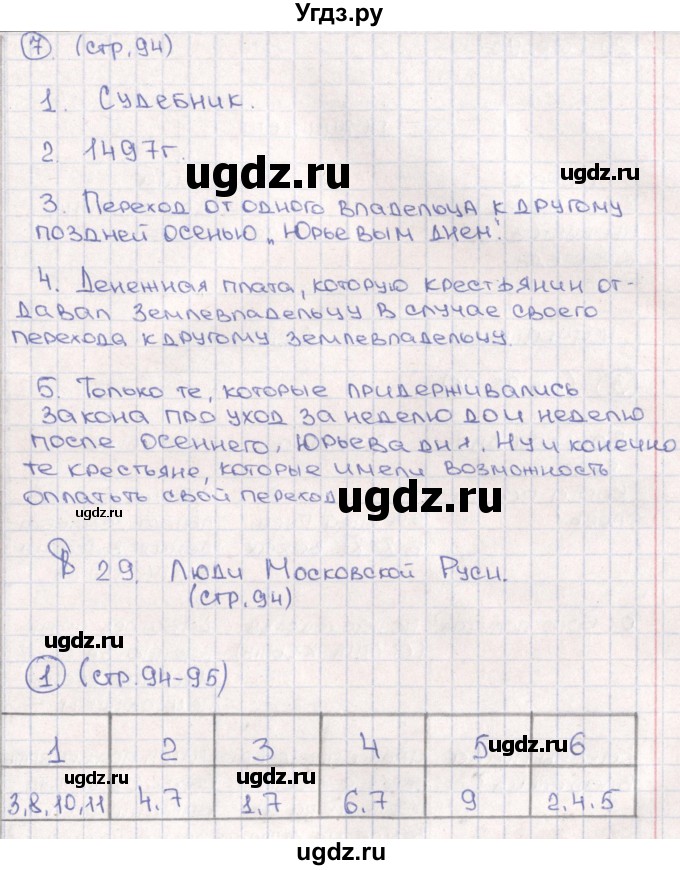 Угдз.ру
7 (стр, 94)
1. Судебник.
2. 1497г.
ugdz.ru
3. Переход от одного владельца к другому
поздней осенью „Юрьевым днем!
4. Денежная плата, которую крестьянин от-
давал землевладельцу в случае своего
перехода к другому землевладельцу.
5. Только те, которые придерживались
закона про уход за неделю до и неделю
после осеннего, Юрьева дня. Ну и конечно
те крестьяне, которые имели возможность
оплатьть свой переход
ugdz.ru ugdz.ru
§ 29. Люди Московской Руси.
(стр, 94)
ugdz.ru
1 (стр. 94-95)
1 2 3 4 5 ugdz.ru 6
ugdz.ru ugdz.ru
3,8,10,11 4.7 1.7 6.7 9 2.4.5
ugdz.ru